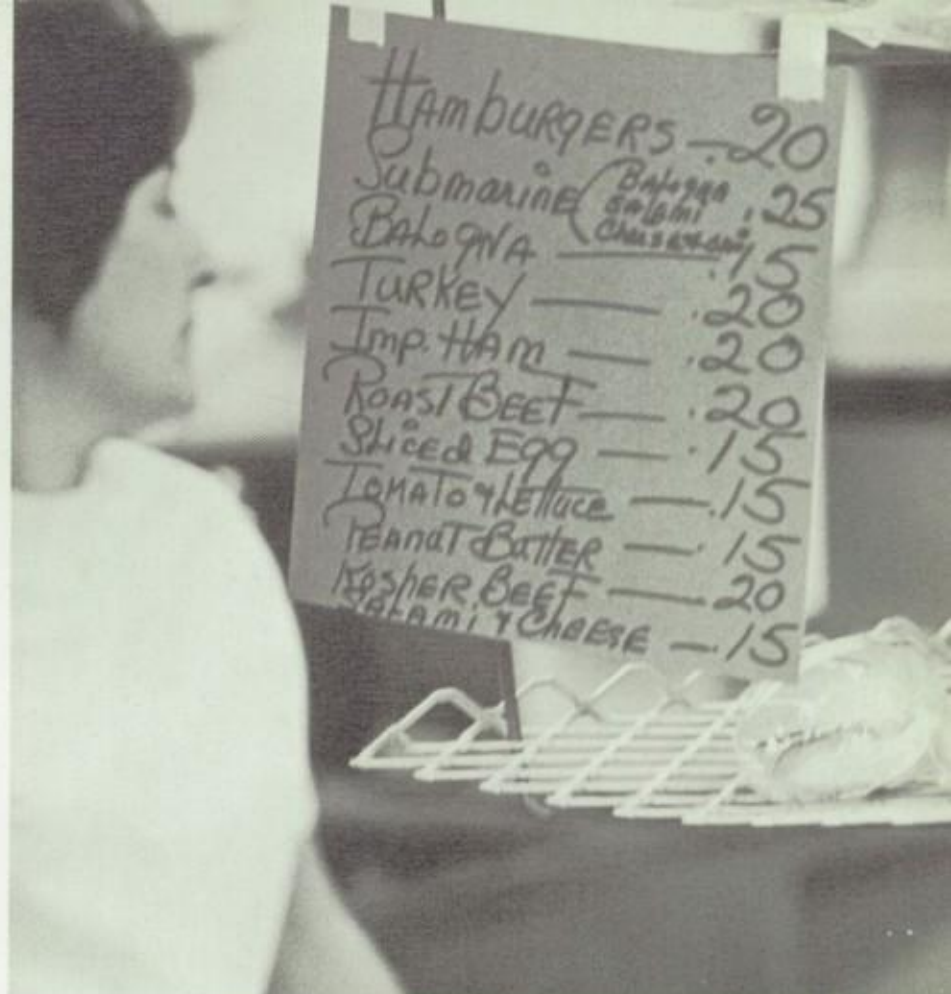 HAMBURGERS — .20
Submarine (Balogna Salami Cheese + Ham .25
BALOGNA — .15
TURKEY — .20
Imp. HAM — .20
ROAST BEEF — .20
Sliced Egg — .15
TOMATO & LETTUCE — .15
PEANUT BUTTER — .15
KOSHER BEEF — 20
SALAMI & CHEESE — .15